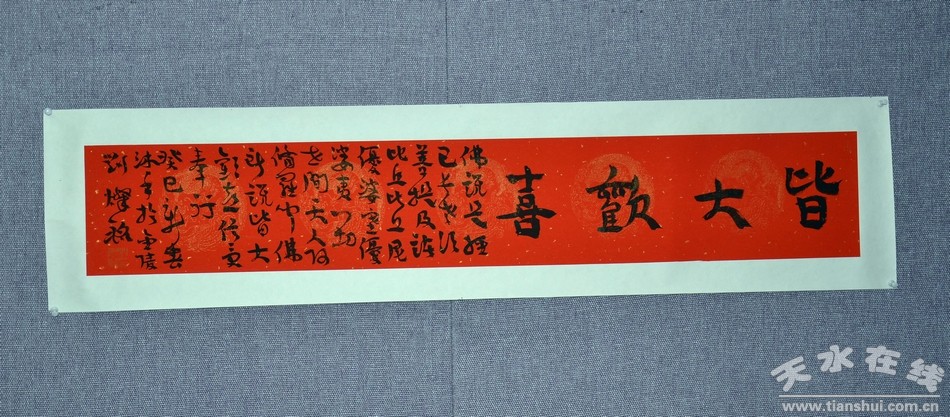 皆大歡喜
佛說是經
已長老須
菩提及諸
比丘比丘尼
優婆塞優
婆夷一切
世間天人阿
脩羅聞佛
所說皆大
歡喜信受
奉行
癸巳新春
沐手於金陵
天水在线
www.tianshui.com.cn